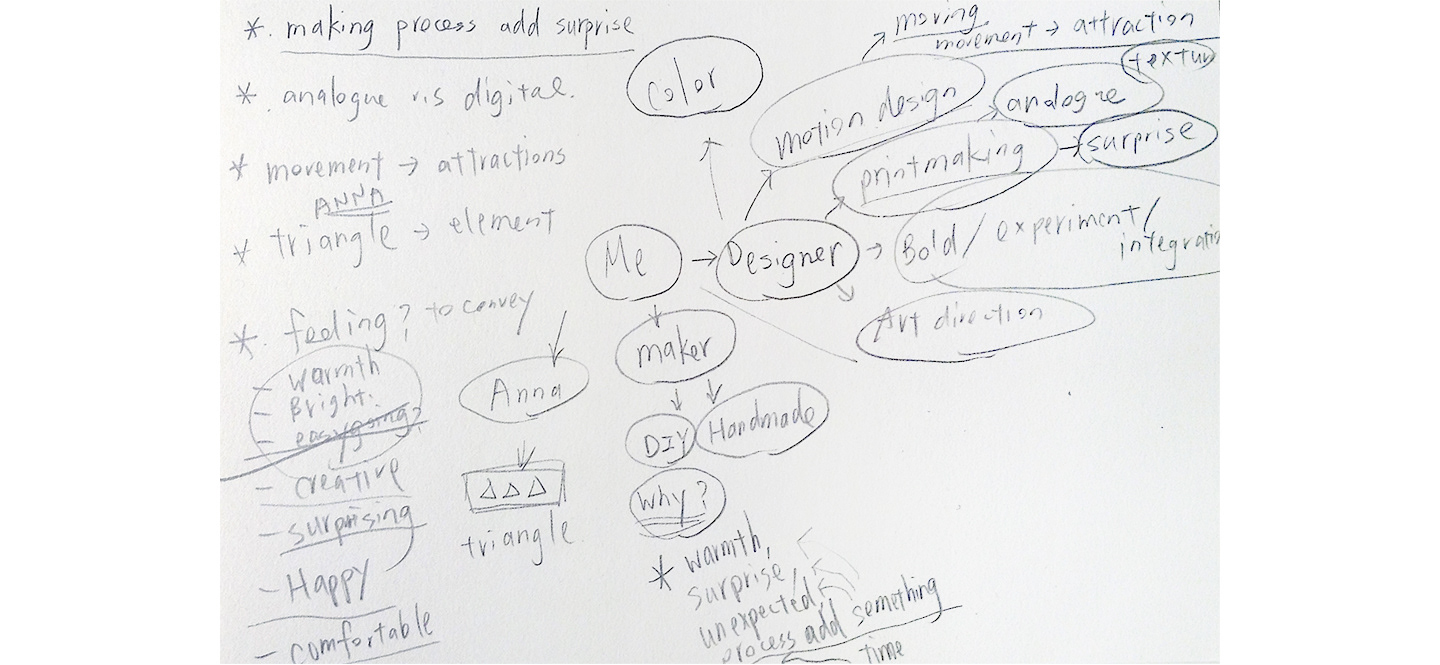 *. making process add surprise
*. analogue v.s digital.
* movement → attractions
ANNA
* triangle → element
*. feeling? to convey
- warmth
- Bright.
- easygoing?
- creative
- surprising
- Happy
- comfortable
Color
moving
movement → attraction
textur
motion design
analogue
printmaking
→ surprise
Me → Designer → Bold / experiment /
integratio
Art direction
maker
Anna
DIY
Handmade
triangle
Why?
* warmth,
surprise /
unexpected,
process add something
time